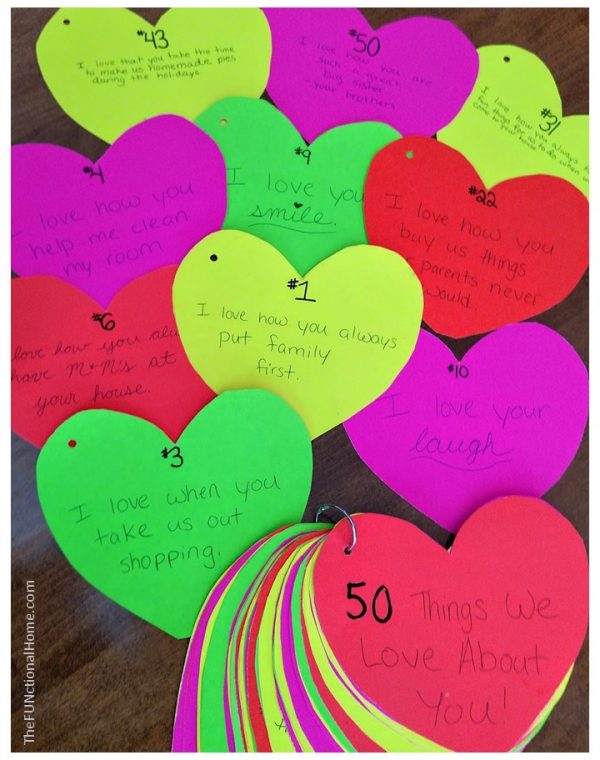 #43
I love that you take the time
to make us homemade pies
during the holidays.
#50
I love how you are
such a great
big sister
-your brothers
#31
I love how you always
fun things for us to do when
come to your house
#4
I love how you
help me clean
my room
#9
I love you
smile.
#22
I love how you
buy us things
parents never
would.
#6
love how you
have M+M's at
your house.
#1
I love how you always
put family
first.
#10
I love your
laugh
#3
I love when you
take us out
shopping.
50 Things We
Love About
You!
TheFUNctionalHome.com